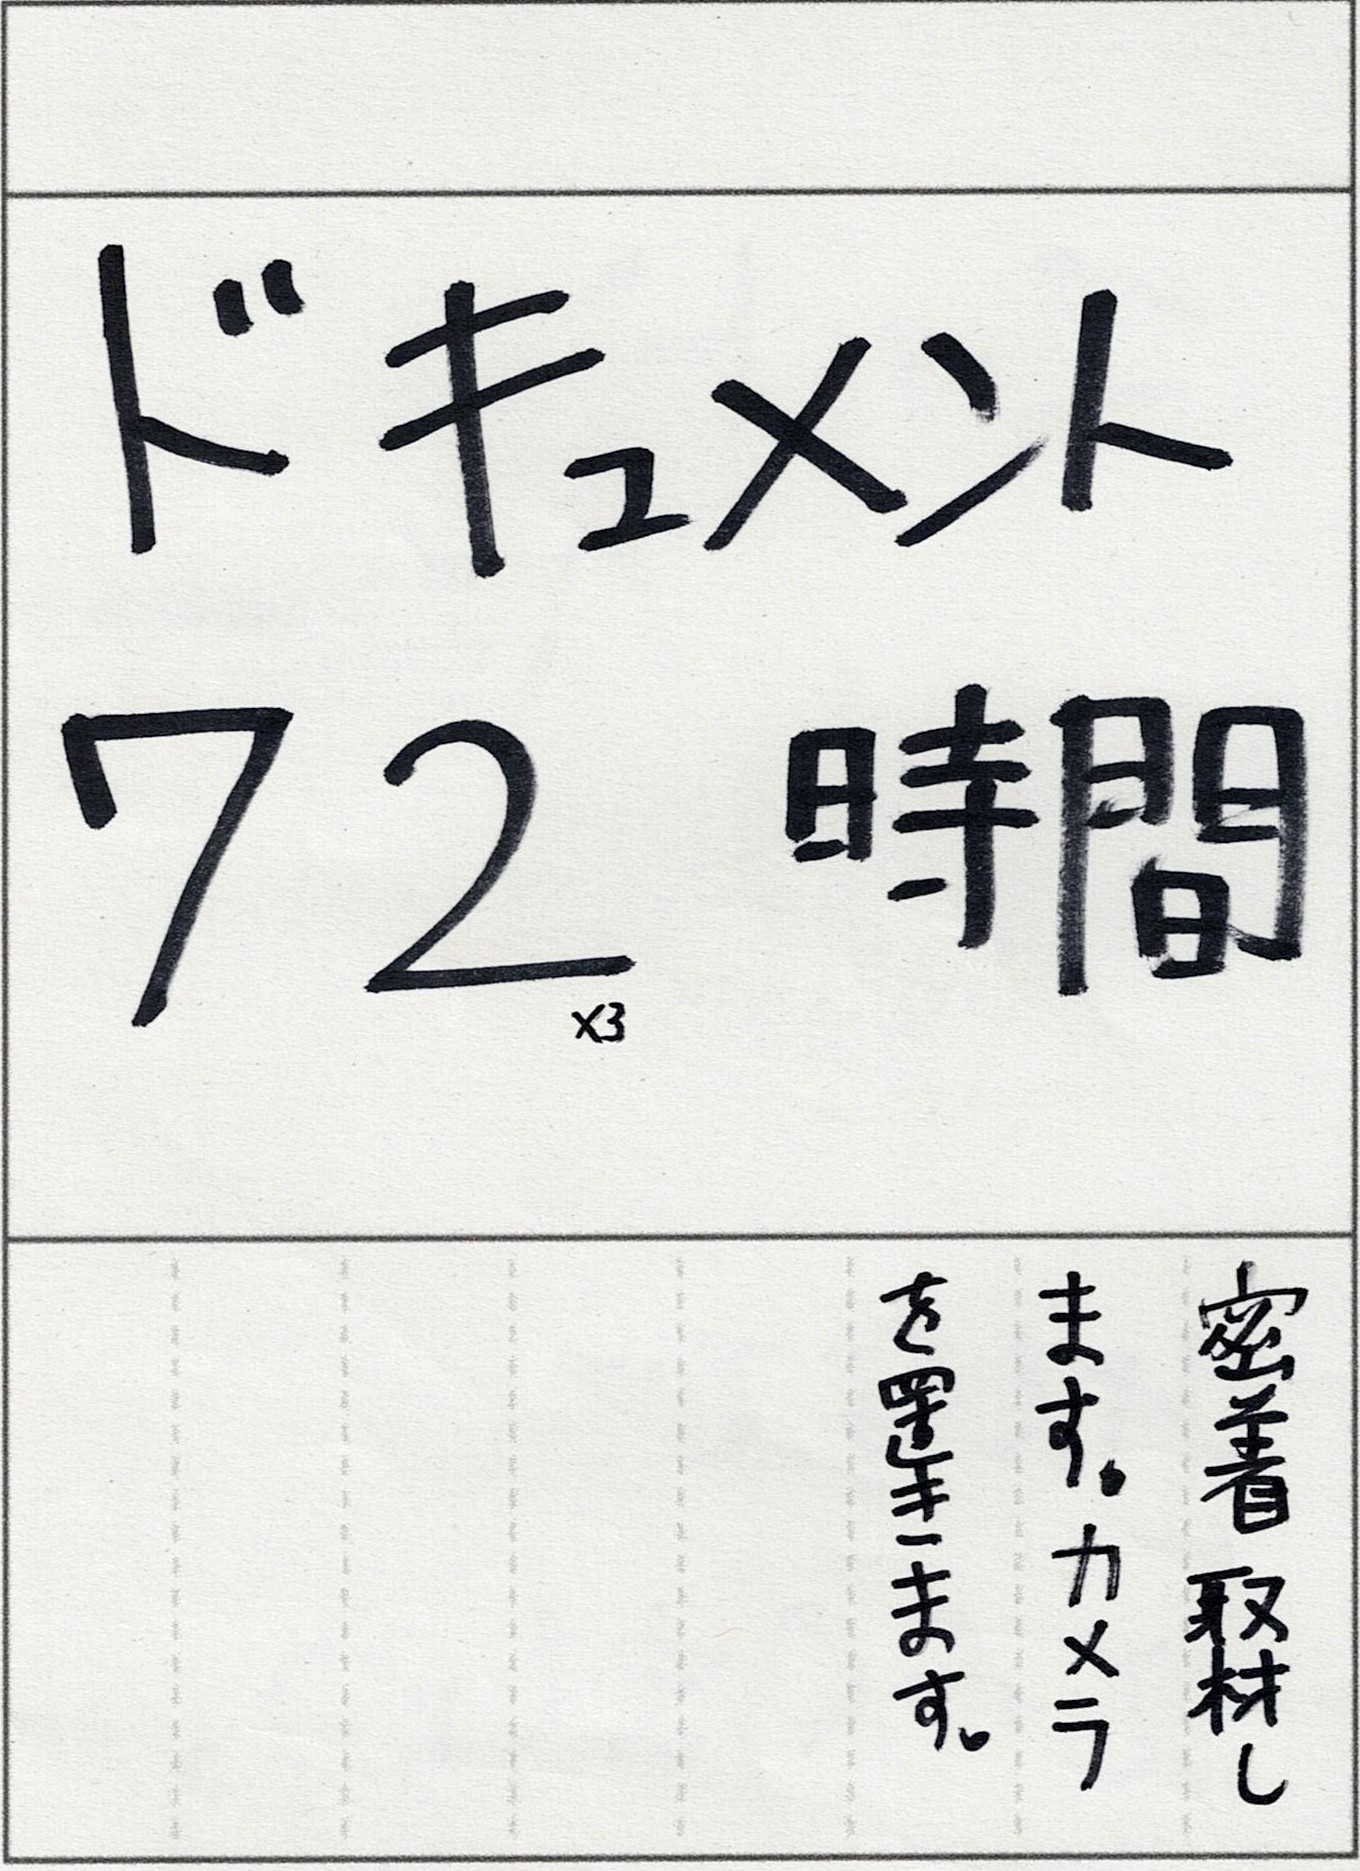 ドキュメント
72 時間
x3
密着取材し
ます。カメラ
を置きます。